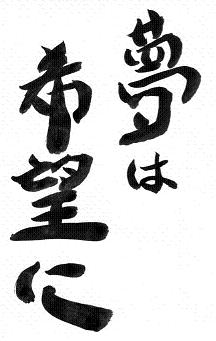 夢は
希望に